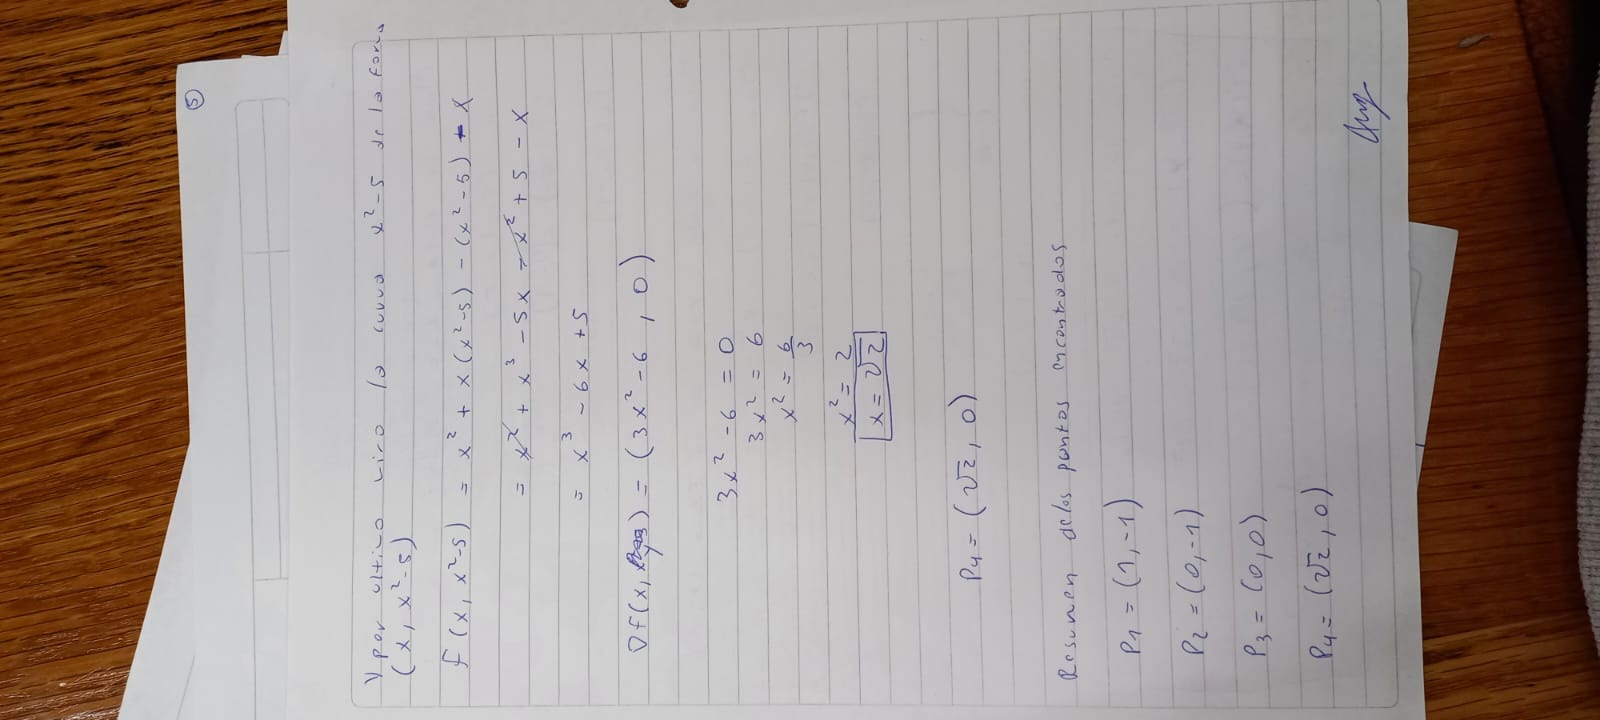 5
Y por ultimo miro la curva x²-5 de la forma
(x, x²-5)
f(x, x²-5) = x² + x(x²-5) - (x²-5) - x
= x² + x³ - 5x - x² + 5 - x
= x³ - 6x + 5
∇f(x, y) = (3x²-6, 0)
3x² - 6 = 0
3x² = 6
x² = 6/3
x² = 2
x = √2
P4 = (√2, 0)
Resumen de los puntos encontrados
P1 = (1, -1)
P2 = (0, -1)
P3 = (0, 0)
P4 = (√2, 0)